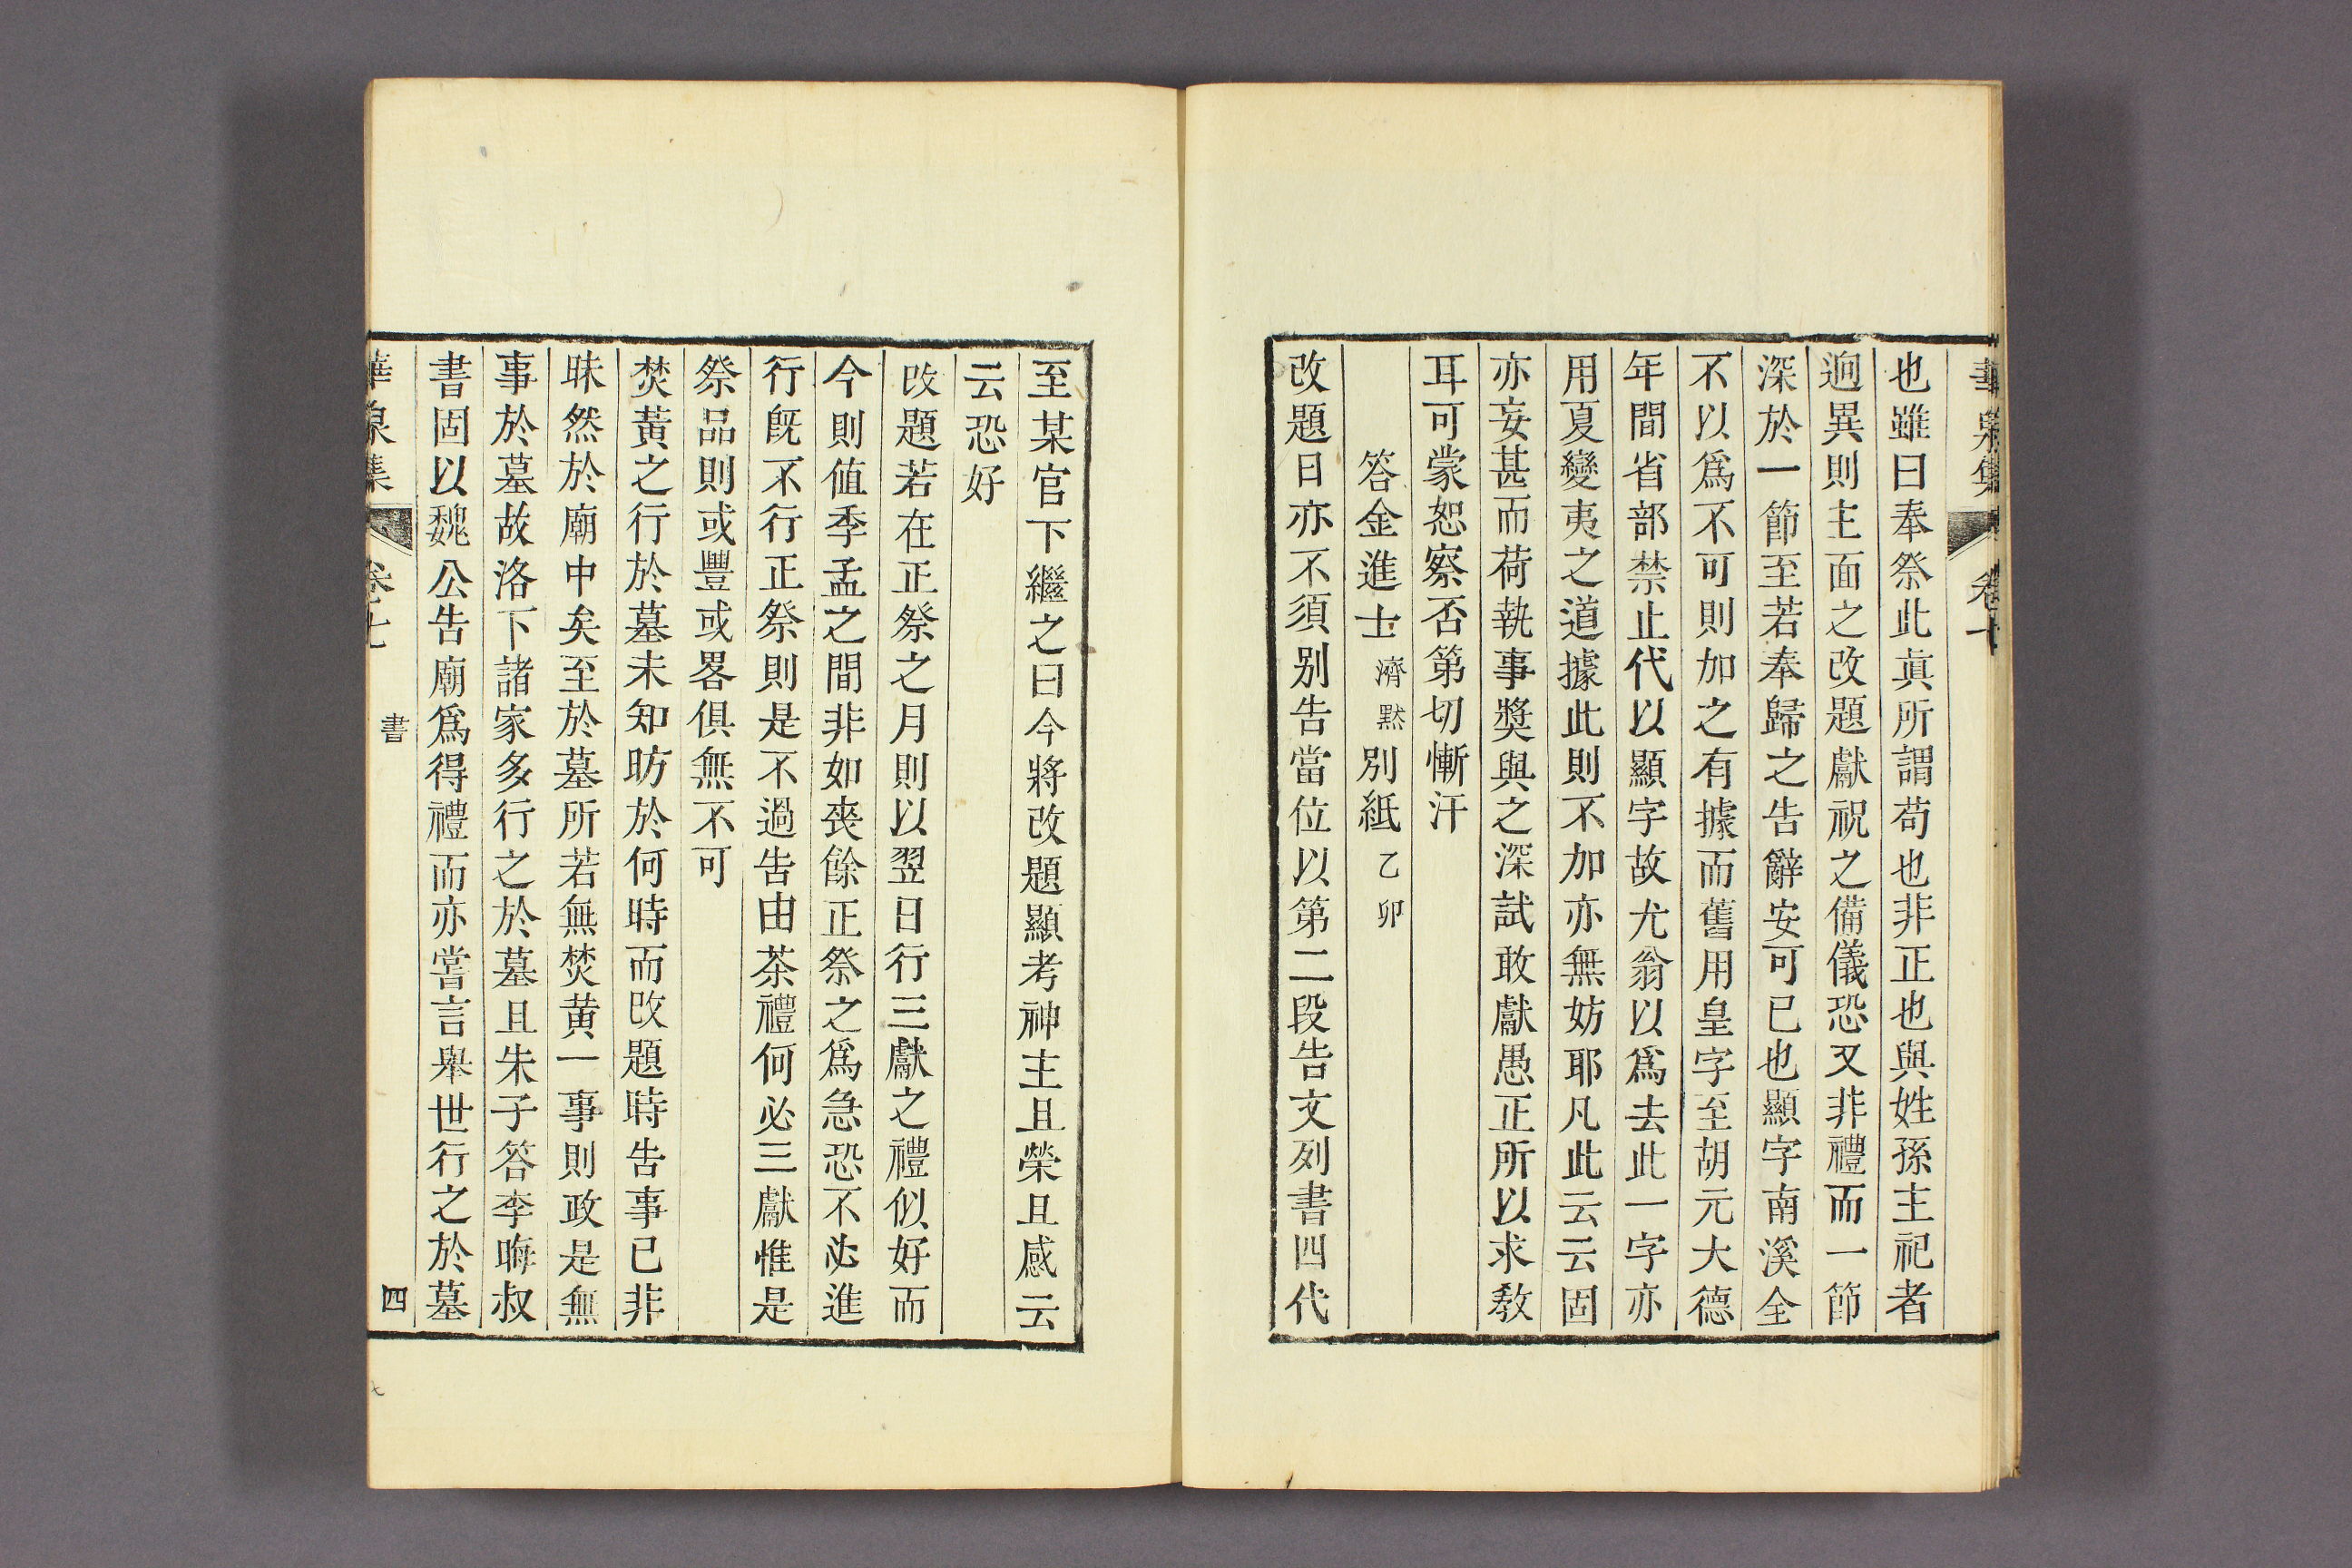 也雖曰奉祭此眞所謂苟也非正也與姓孫主祀者
逈異則主面之改題獻祝之備儀恐又非禮而一節
深於一節至若奉歸之告辭安可已也顯字南溪全
不以爲不可則加之有據而舊用皇字至胡元大德
年間省部禁止代以顯字故尤翁以爲去此一字亦
用夏變夷之道據此則不加亦無妨耶凡此云云固
亦妄甚而荷執事奬與之深試敢獻愚正所以求敎
耳可蒙恕察否第切慚汗
答金進士濟默別紙乙卯
改題日亦不須別告當位以第二段告文列書四代
至某官下繼之曰今將改題顯考神主且榮且感云
云恐好
改題若在正祭之月則以翌日行三獻之禮似好而
今則值季孟之間非如喪餘正祭之爲急恐不必進
行旣不行正祭則是不過告由茶禮何必三獻惟是
祭品則或豐或畧俱無不可
焚黃之行於墓未知昉於何時而改題時告事已非
昧然於廟中矣至於墓所若無焚黃一事則政是無
事於墓故洛下諸家多行之於墓且朱子答李晦叔
書固以魏公告廟爲得禮而亦嘗言舉世行之於墓
卷七
書
四